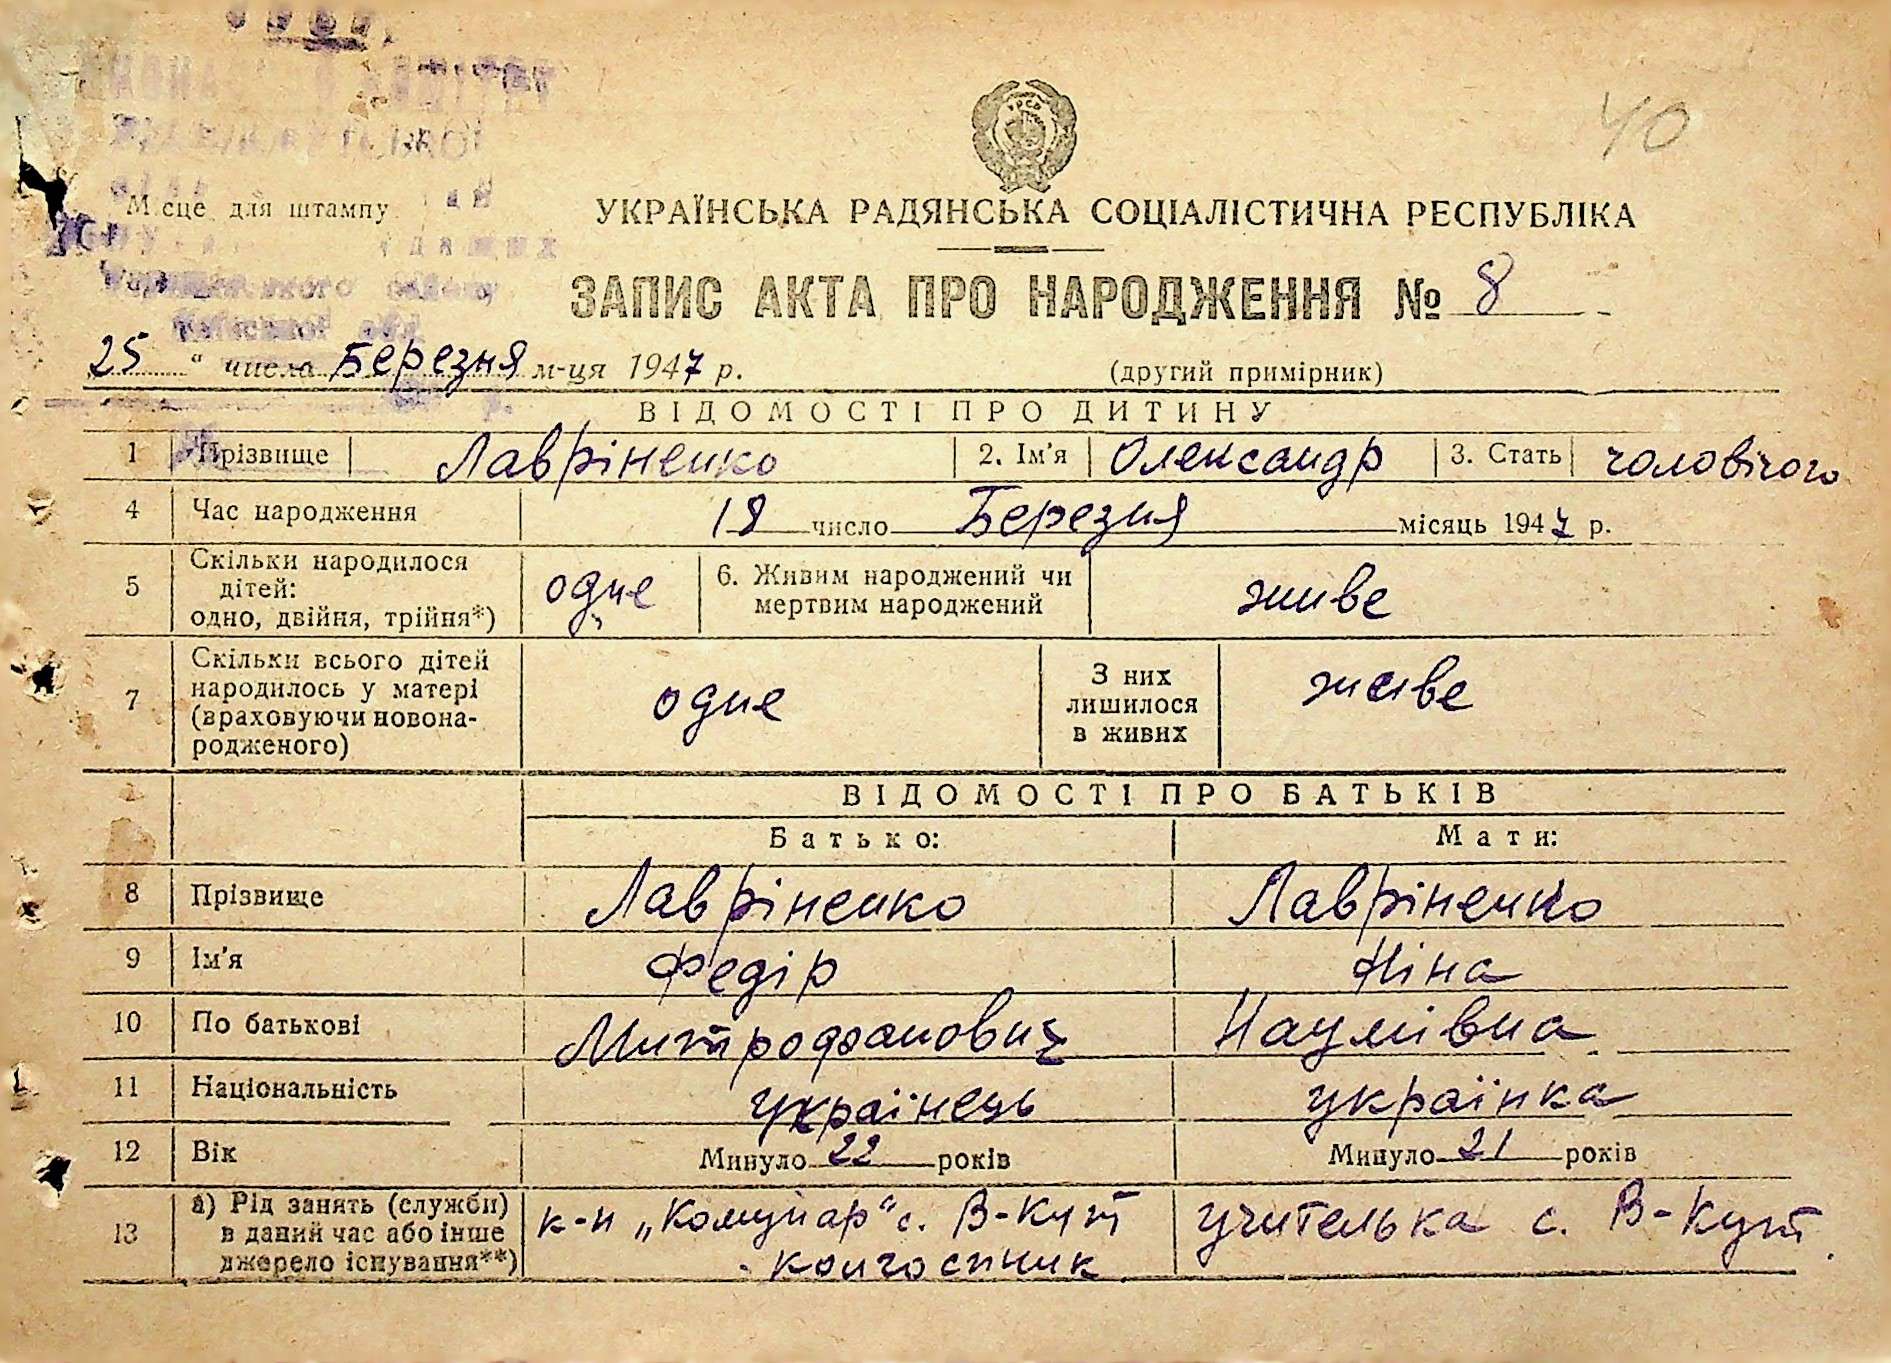 40
УКРАЇНСЬКА РАДЯНСЬКА СОЦІАЛІСТИЧНА РЕСПУБЛІКА
Місце для штампу
ЗАПИС АКТА ПРО НАРОДЖЕННЯ № 8
25 " числа Березня м-ця 1947 р.
(другий примірник)
ВІДОМОСТІ ПРО ДИТИНУ
1 Прізвище Лавріненко 2. Ім'я Олександр 3. Стать чоловічого
4 Час народження 18 число Березня місяць 1947 р.
5 Скільки народилося дітей: одно, двійня, трійня*) одне 6. Живим народжений чи мертвим народжений живе
7 Скільки всього дітей народилось у матері (враховуючи новонародженого) одне З них лишилося в живих живе
ВІДОМОСТІ ПРО БАТЬКІВ
Батько: Мати:
8 Прізвище Лавріненко Лавріненко
9 Ім'я Федір Ніна
10 По батькові Митрофанович Наумівна
11 Національність українець українка
12 Вік Минуло 22 років Минуло 21 років
13 а) Рід занять (служби) в даний час або інше джерело існування**) к-п „Комунар" с. В-Кут колгоспник учителька с. В-Кут.